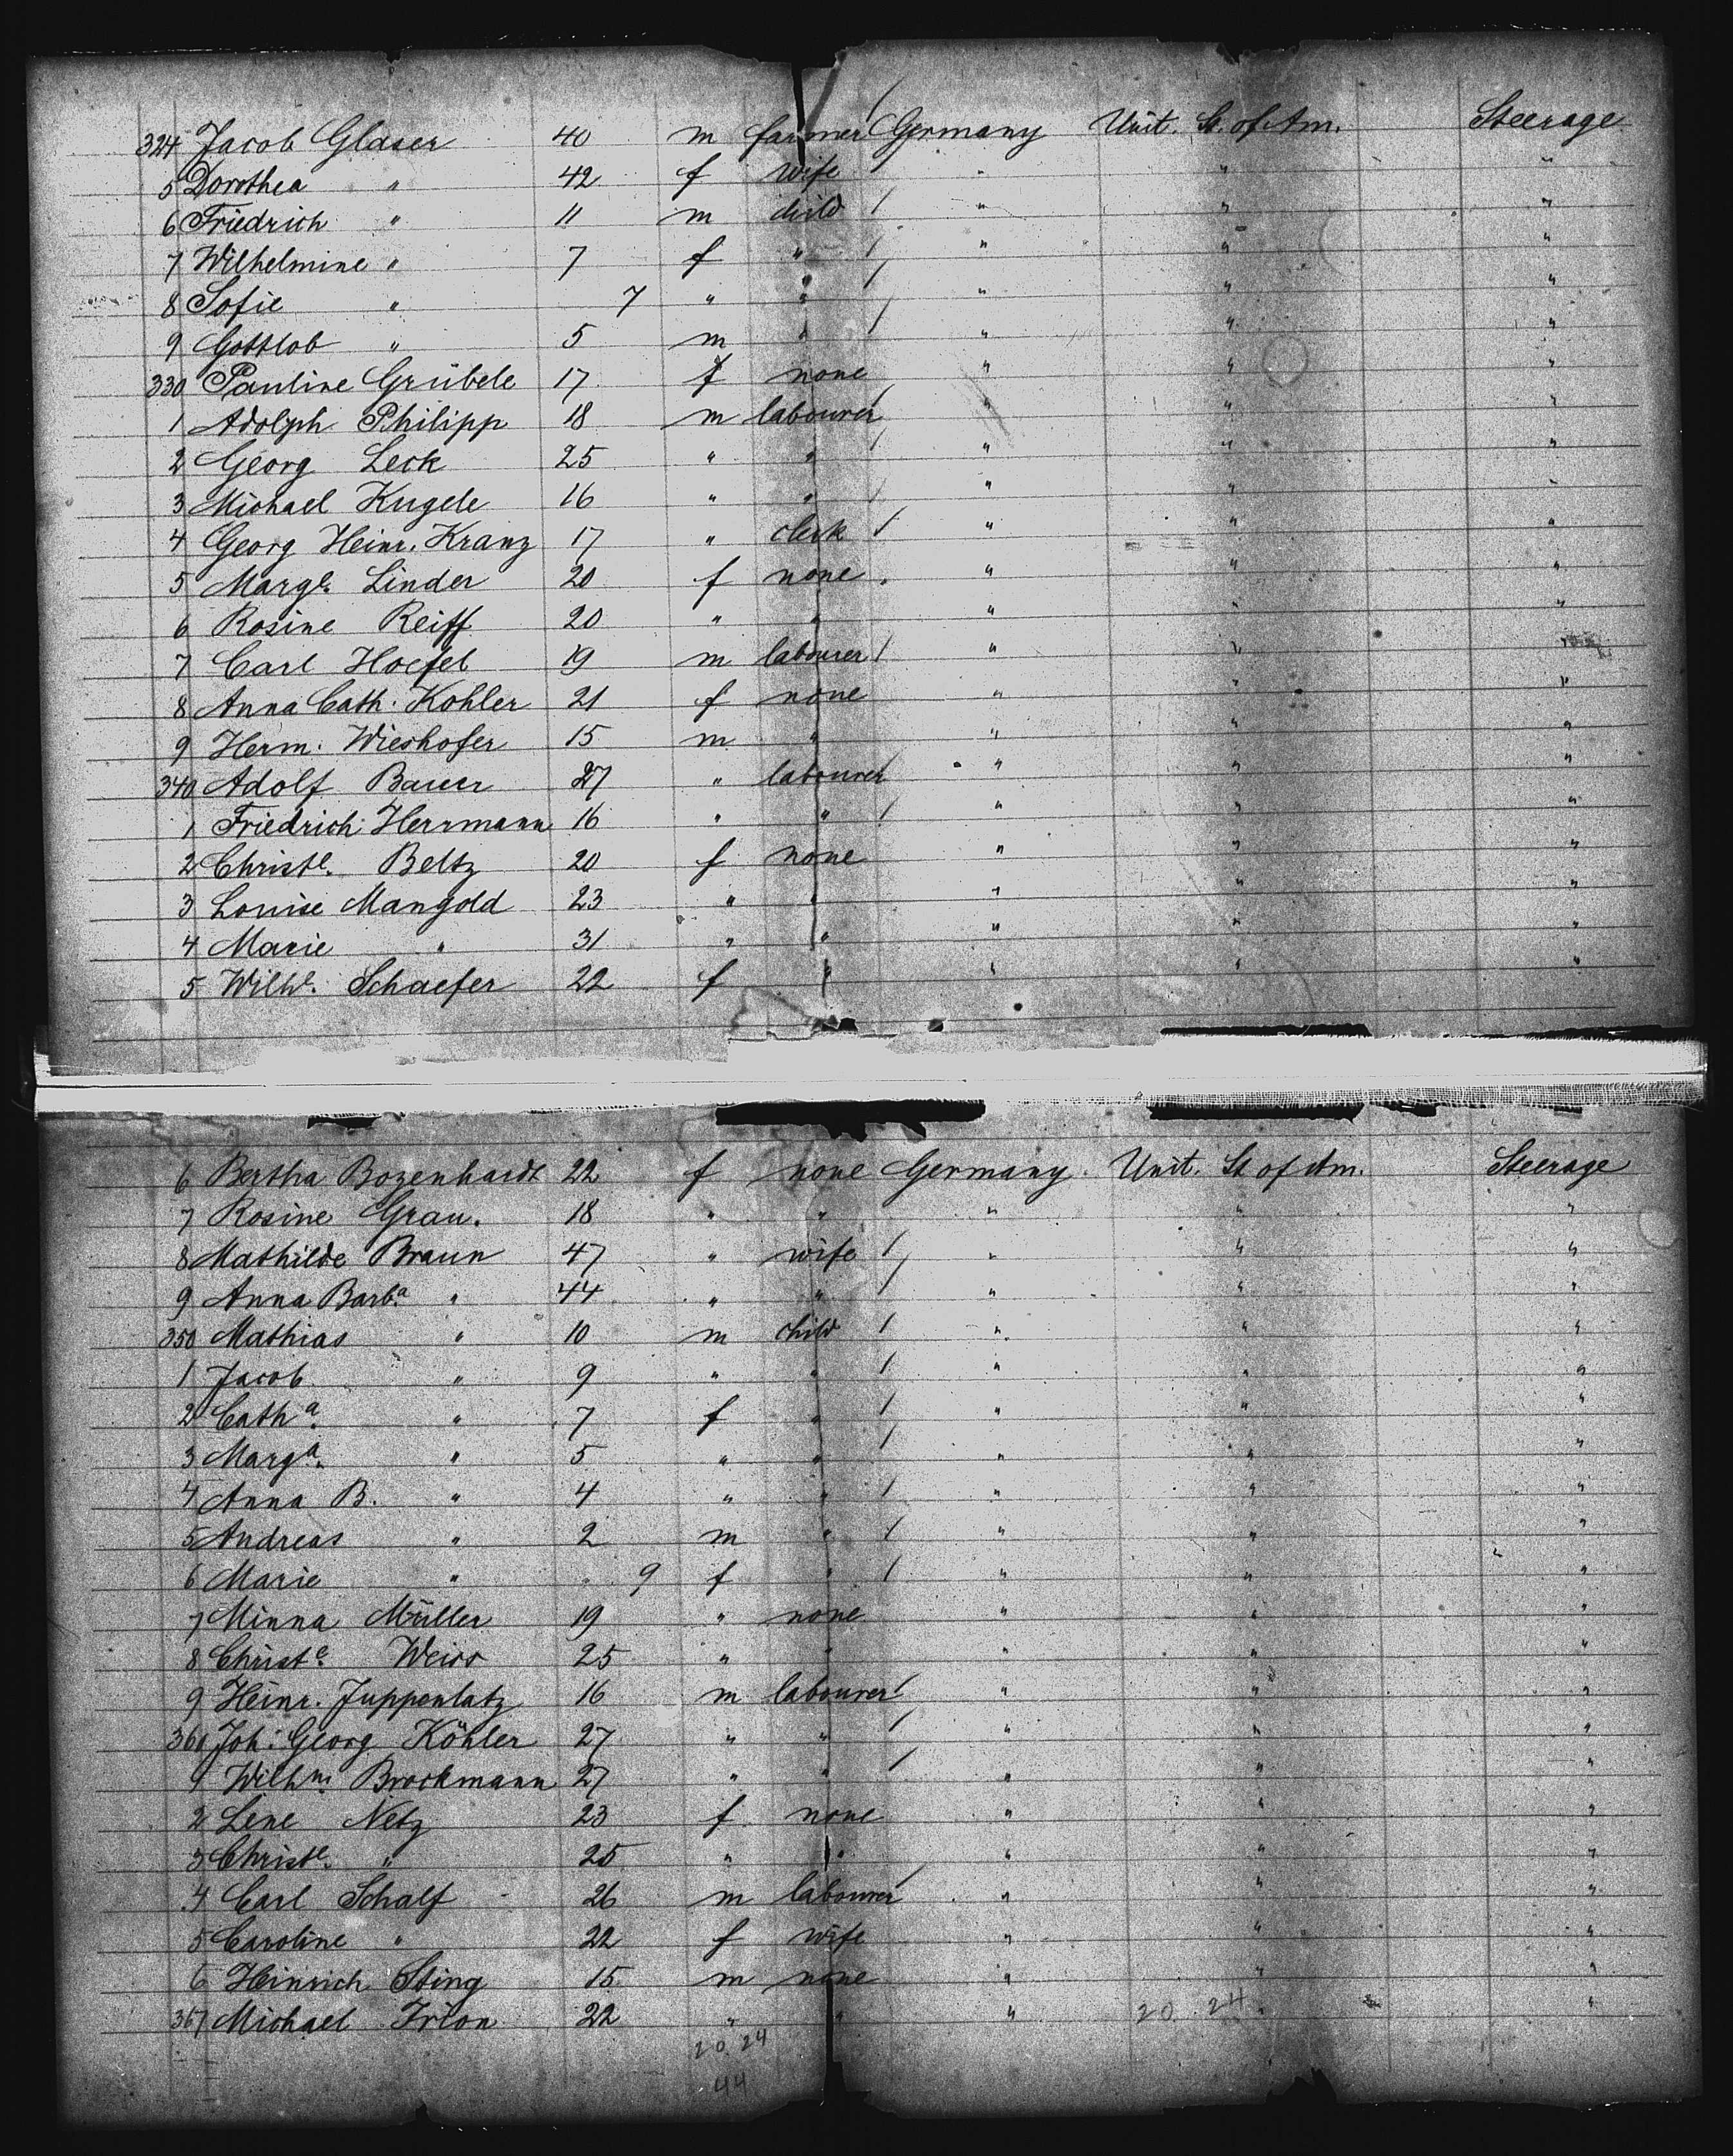 324 Jacob Glaser 40 m farmer Germany Unit. St. of Am. Steerage
5 Dorothea " 42 f wife " " "
6 Friedrich " 11 m child " " "
7 Wilhelmine " 7 f " " " "
8 Sofie " 7 " " " " "
9 Gottlob " 5 m " " " "
330 Pauline Grübele 17 f none " " "
1 Adolph Philipp 18 m labourer " " "
2 Georg Leck 25 " " " " "
3 Michael Kugele 16 " " " " "
4 Georg Heinr. Kranz 17 " clerk " " "
5 Marge. Linder 20 f none " " "
6 Rosine Reiff 20 " " " " "
7 Carl Hoefel 19 m labourer " " "
8 Anna Cath. Kohler 21 f none " " "
9 Herm. Wieshofer 15 m " " " "
340 Adolf Bauer 27 " labourer " " "
1 Friedrich Herrmann 16 " " " " "
2 Christe. Beltz 20 f none " " "
3 Louise Mangold 23 " " " " "
4 Marie " 31 " " " " "
5 Wilhe. Schaefer 22 f " " " "
6 Bertha Bozenhardt 22 f none Germany Unit. St of Am. Steerage
7 Rosine Grau. 18 " " " " "
8 Mathilde Braun 47 " wife " " "
9 Anna Barba. " 44 " " " " "
350 Mathias " 10 m child " " "
1 Jacob " 9 " " " " "
2 Catha. " 7 f " " " "
3 Marga. " 5 " " " " "
4 Anna B. " 4 " " " " "
5 Andreas " 2 m " " " "
6 Marie " 9 f " " " "
7 Minna Müller 19 " none " " "
8 Christe. Weiss 25 " " " " "
9 Heinr. Juppenlatz 16 m labourer " " "
360 Joh. Georg Köhler 27 " " " " "
1 Wilhm Brockmann 27 " " " " "
2 Lene Netz 23 f none " " "
3 Christe. " 25 " " " " "
4 Carl Schalf 26 m labourer " " "
5 Caroline " 22 f wife " " "
6 Heinrich Sting 15 m none " " "
367 Michael Irion 22 " " " 20. 24 " "
20. 24
44